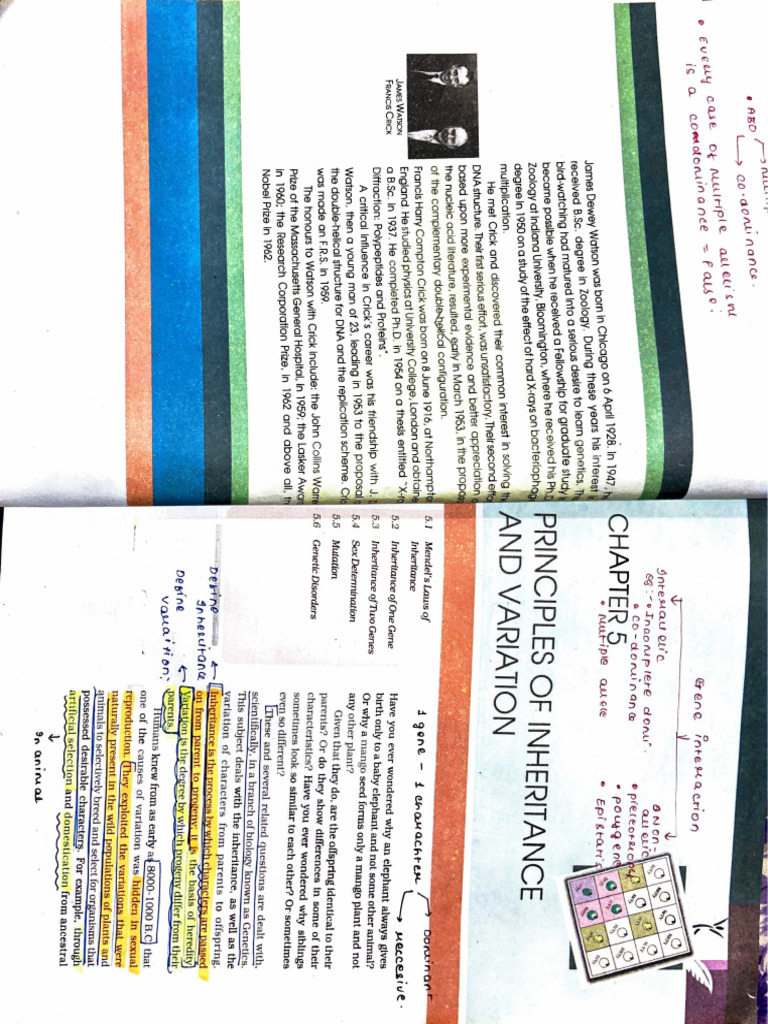 • ABO
→ co-dominance.
• Every case of multiple allelism
is a comdominance = False.
James Dewey Watson was born in Chicago on 6 April 1928. In 1947,
received B.Sc. degree in Zoology. During these years his interest
bird-watching had matured into a serious desire to learn genetics. Th
became possible when he received a Fellowship for graduate study
Zoology at Indiana University, Bloomington, where he received his Ph.
degree in 1950 on a study of the effect of hard X-rays on bacteriophag
multiplication.
He met Crick and discovered their common interest in solving th
DNA structure. Their first serious effort, was unsatisfactory. Their second effo
based upon more experimental evidence and better appreciation
the nucleic acid literature, resulted, early in March 1953, in the propos
of the complementary double-helical configuration.
Francis Harry Compton Crick was born on 8 June 1916, at Northampto
England. He studied physics at University College, London and obtaine
a B.Sc. in 1937. He completed Ph.D. in 1954 on a thesis entitled "X-ra
Diffraction: Polypeptides and Proteins".
A critical influence in Crick's career was his friendship with J. D
Watson, then a young man of 23, leading in 1953 to the proposal
the double-helical structure for DNA and the replication scheme. Cric
was made an F.R.S. in 1959.
The honours to Watson with Crick include: the John Collins Warre
Prize of the Massachusetts General Hospital, in 1959; the Lasker Awar
in 1960; the Research Corporation Prize, in 1962 and above all, th
Nobel Prize in 1962.
JAMES WATSON
FRANCIS CRICK
Gene interaction
Interallelic
eg:- • Incomplete domi.
• co-dominance
• Multiple allele
Non-allelic
• pleiotropy
• polygene
• Epistatic
CHAPTER 5
PRINCIPLES OF INHERITANCE
AND VARIATION
5.1 Mendel's Laws of
Inheritance
5.2 Inheritance of One Gene
5.3 Inheritance of Two Genes
5.4 Sex Determination
5.5 Mutation
5.6 Genetic Disorders
1 gene - 1 character
→ Dominant
→ reccesive.
Have you ever wondered why an elephant always gives
birth only to a baby elephant and not some other animal?
Or why a mango seed forms only a mango plant and not
any other plant?
Given that they do, are the offspring identical to their
parents? Or do they show differences in some of their
characteristics? Have you ever wondered why siblings
sometimes look so similar to each other? Or sometimes
even so different?
These and several related questions are dealt with,
scientifically, in a branch of biology known as Genetics.
This subject deals with the inheritance, as well as the
variation of characters from parents to offspring.
Inheritance is the process by which characters are passed
on from parent to progeny; it is the basis of heredity.
Variation is the degree by which progeny differ from their
parents.
Define Inheritance
Define variation.
Humans knew from as early as 8000-1000 B.C. that
one of the causes of variation was hidden in sexual
reproduction. They exploited the variations that were
naturally present in the wild populations of plants and
animals to selectively breed and select for organisms that
possessed desirable characters. For example, through
artificial selection and domestication from ancestral
In animal